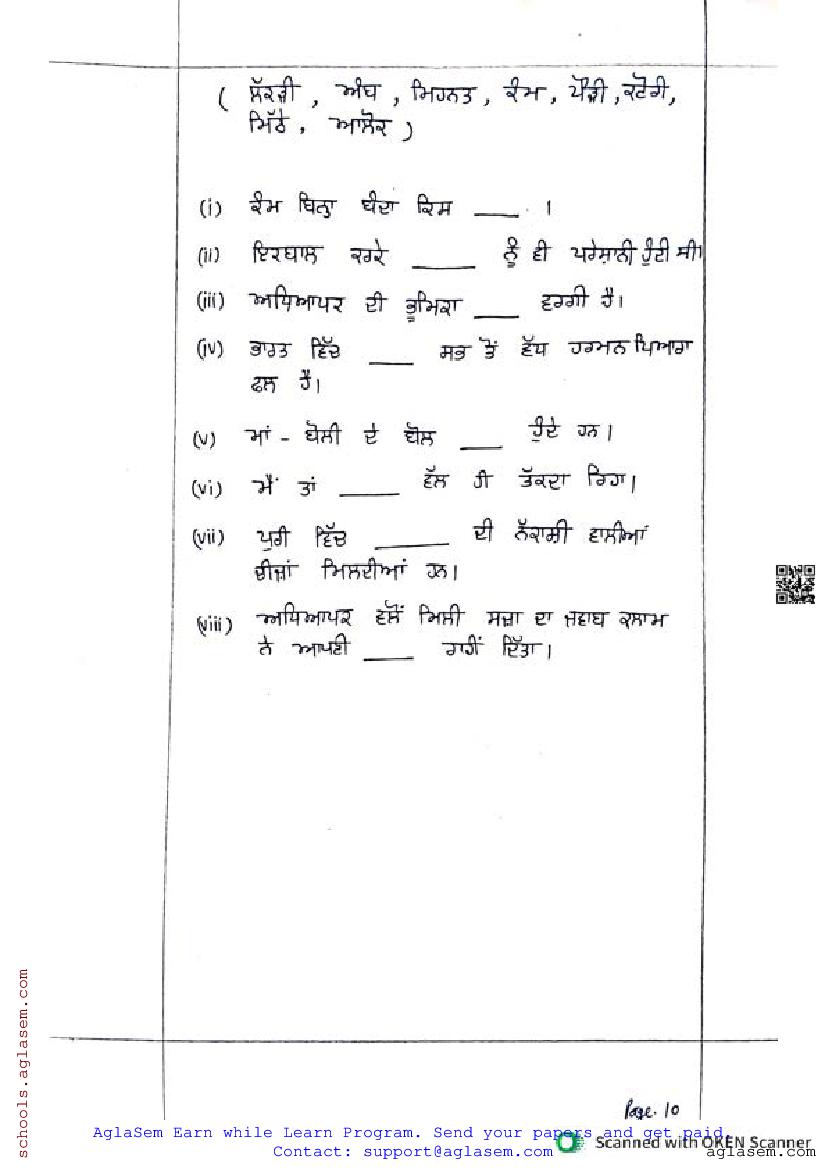 ( ਲੱਕੜੀ , ਅੰਬ , ਮਿਹਨਤ , ਕੰਮ , ਪੌੜੀ , ਕਟੋਰੀ,
ਮਿੱਠੇ , ਆਲੋਕ )
(i) ਕੰਮ ਬਿਨਾ ਬੰਦਾ ਕਿਸ ____ ।
(ii) ਇਕਬਾਲ ਕਰਕੇ ____ ਨੂੰ ਵੀ ਪਰੇਸ਼ਾਨੀ ਹੁੰਦੀ ਸੀ।
(iii) ਅਧਿਆਪਕ ਦੀ ਭੂਮਿਕਾ ____ ਵਰਗੀ ਹੈ।
(iv) ਭਾਰਤ ਵਿੱਚ ____ ਸਭ ਤੋਂ ਵੱਧ ਹਰਮਨ ਪਿਆਰਾ
ਫਲ ਹੈ।
(v) ਮਾਂ - ਬੋਲੀ ਦੇ ਬੋਲ ____ ਹੁੰਦੇ ਹਨ।
(vi) ਮੈਂ ਤਾਂ ____ ਵੱਲ ਹੀ ਤੱਕਦਾ ਰਿਹਾ।
(vii) ਪੁਰੀ ਵਿੱਚ ____ ਦੀ ਨੱਕਾਸ਼ੀ ਵਾਲੀਆਂ
ਚੀਜ਼ਾਂ ਮਿਲਦੀਆਂ ਹਨ।
(viii) ਅਧਿਆਪਕ ਵਲੋਂ ਮਿਲੀ ਸਜ਼ਾ ਦਾ ਜਵਾਬ ਕਲਾਮ
ਨੇ ਆਪਣੀ ____ ਰਾਹੀਂ ਦਿੱਤਾ।
schools.aglasem.com
Page. 10
AglaSem Earn while Learn Program. Send your papers and get paid.
Contact: support@aglasem.com
Scanned with OKEN Scanner
aglasem.com